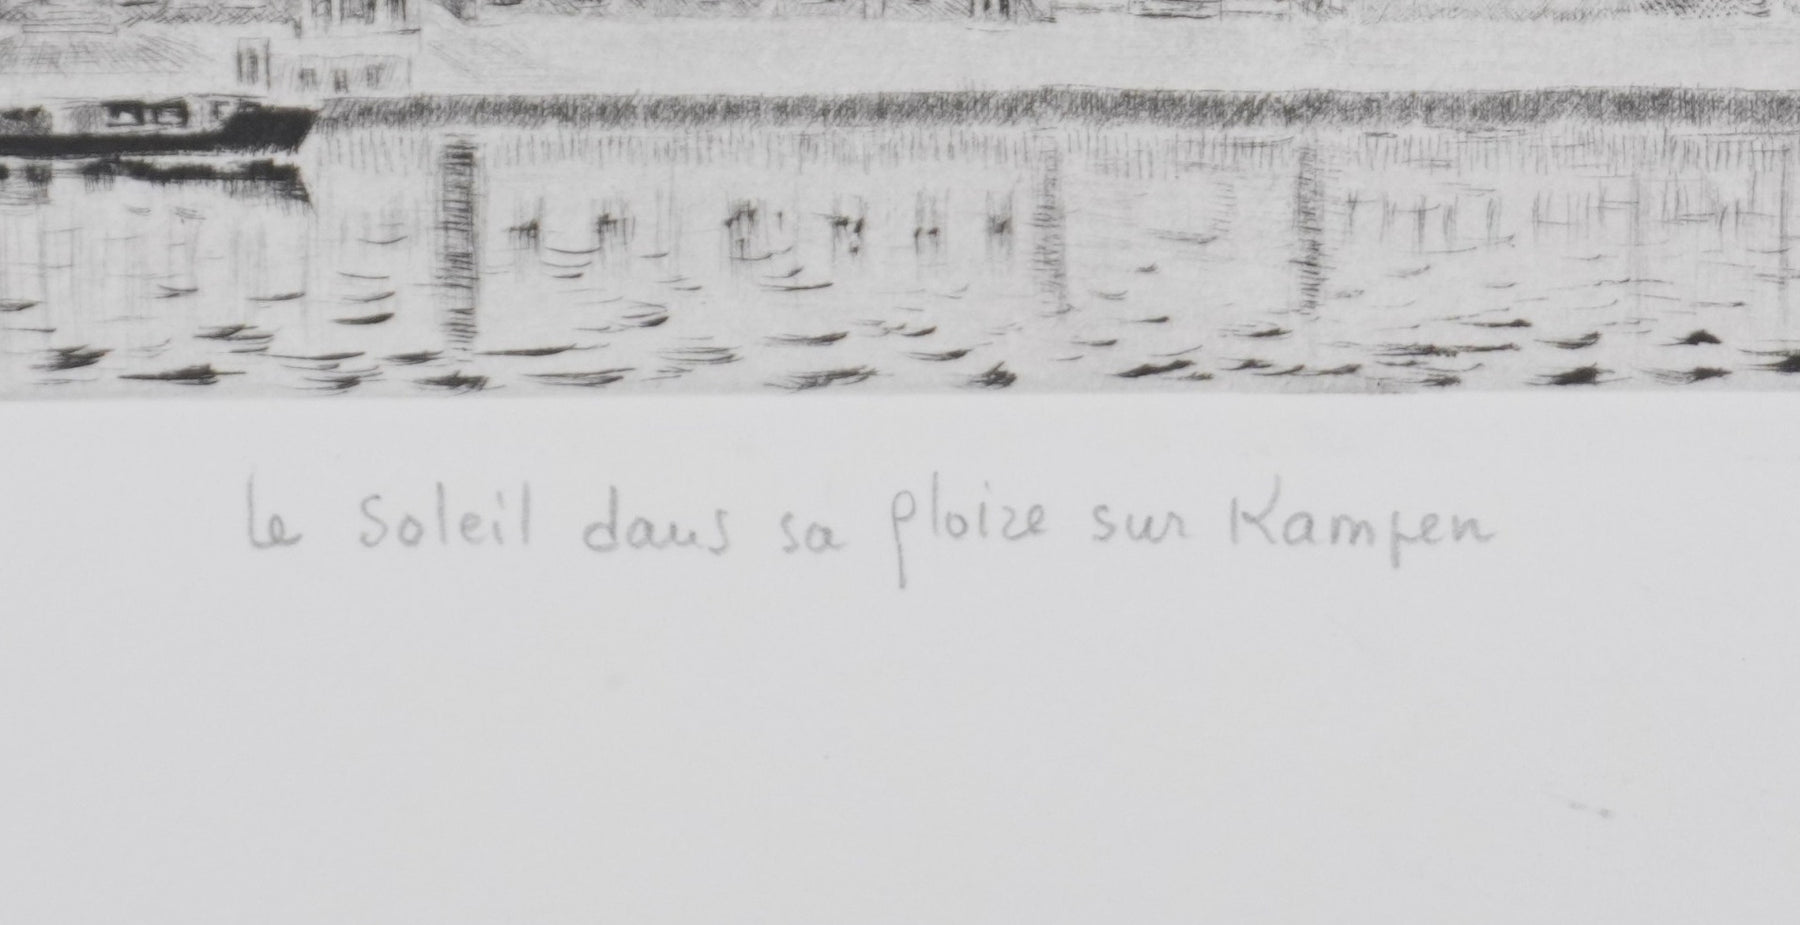 le Soleil dans sa gloire sur Kampen